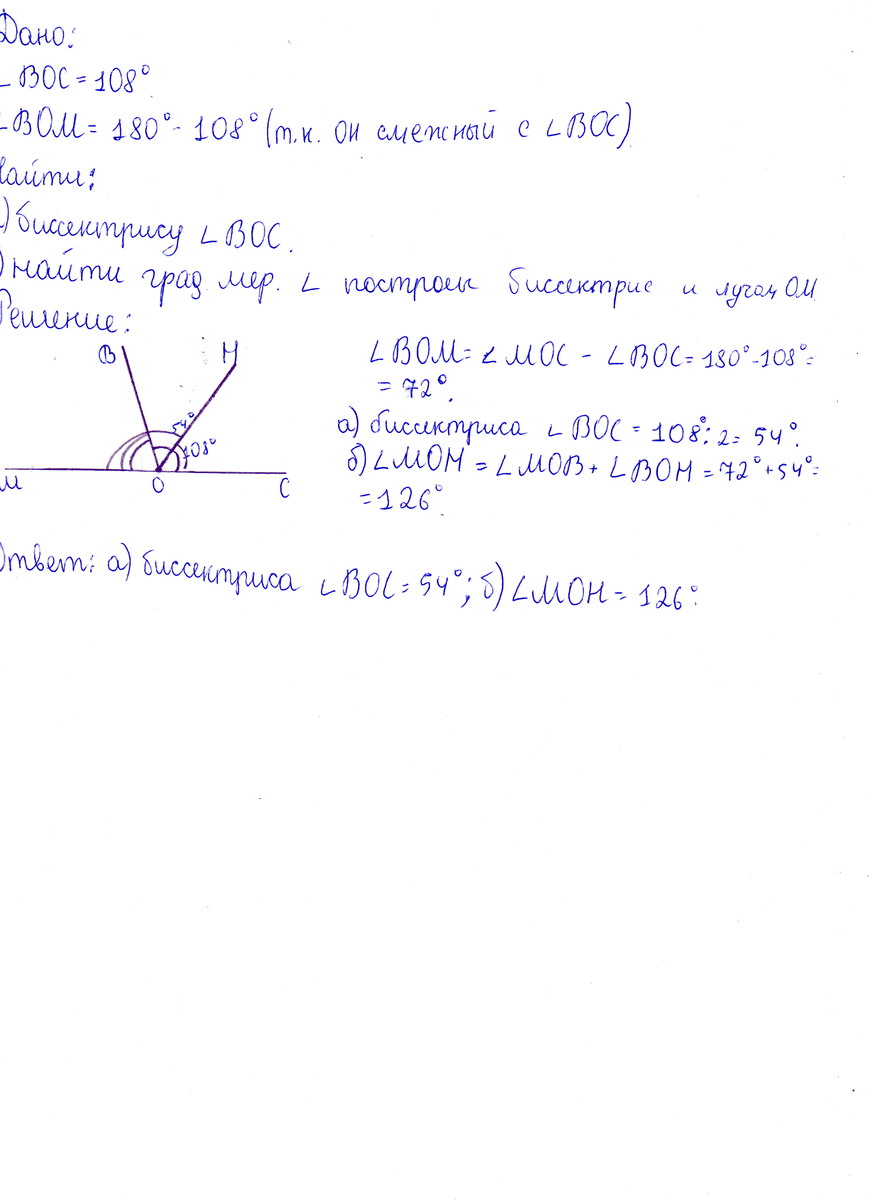 Дано:
∠BOC = 108°
∠BOM = 180° - 108° (т.к. он смежный с ∠BOC)
айти:
) биссектрису ∠BOC.
) найти град мер. ∠ построен биссектрис и лучом OM
Решение:
B H
54°
108°
M O C
∠BOM = ∠MOC - ∠BOC = 180° - 108° =
= 72°.
а) биссектриса ∠BOC = 108° : 2 = 54°.
б) ∠MOH = ∠MOB + ∠BOH = 72° + 54° =
= 126°
Ответ: а) биссектриса ∠BOC = 54°; б) ∠MOH = 126°.